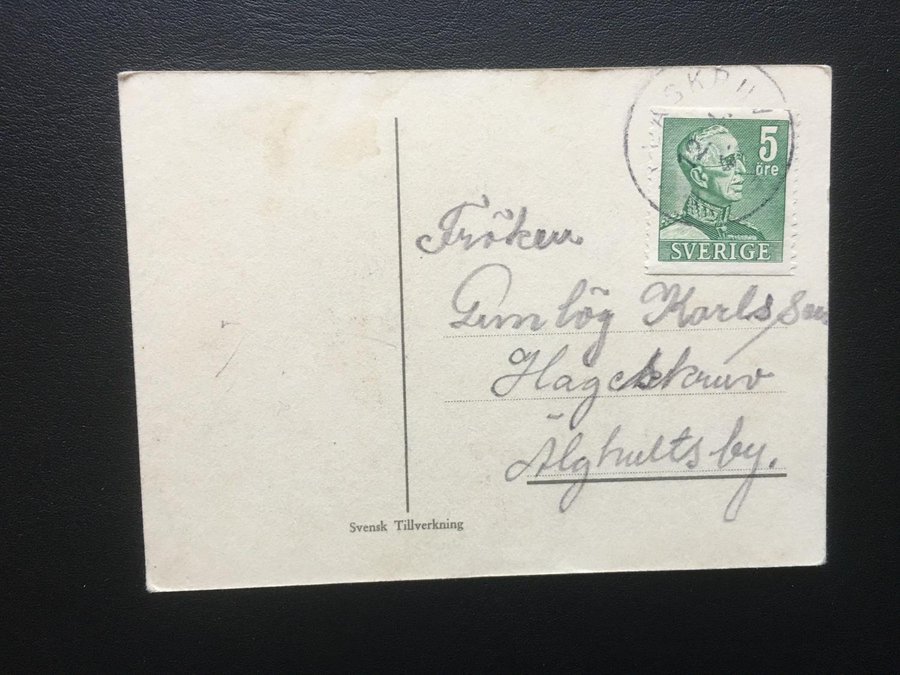 5
öre
SVERIGE
Fröken
Gunlög Karlsson
Hagelskruv
Älghultsby.
Svensk Tillverkning